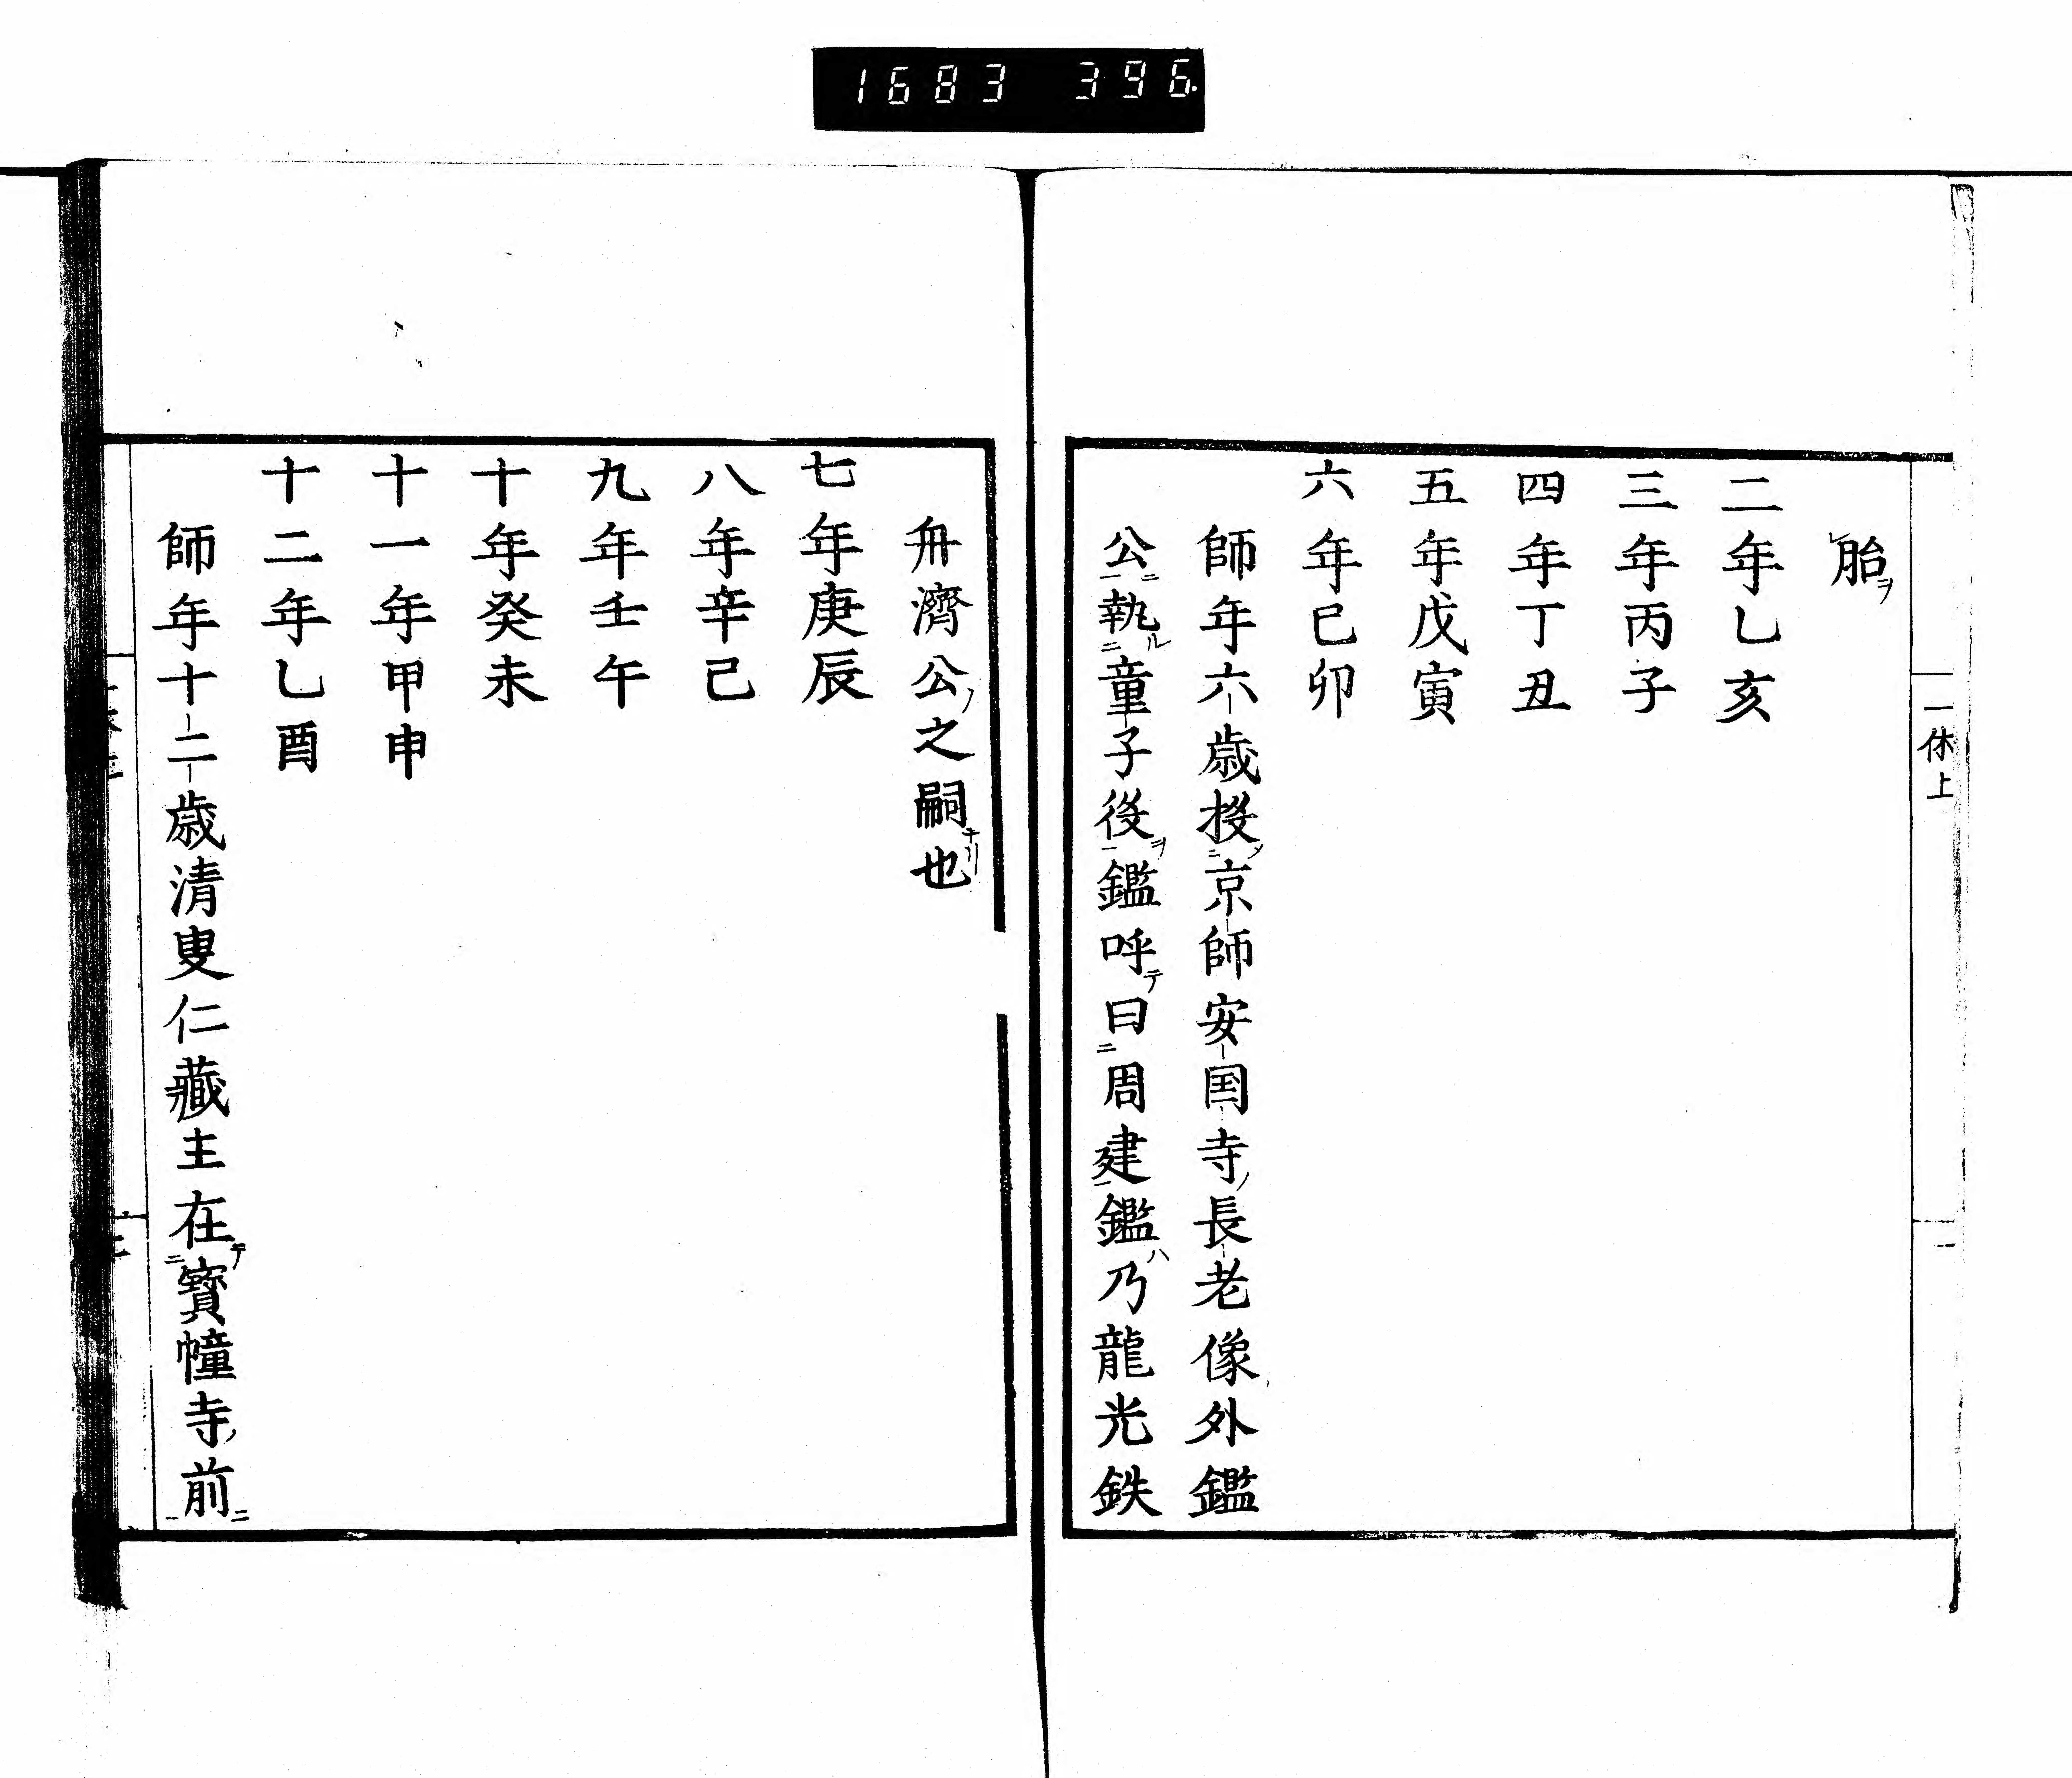 1683 396.
一休上
胎
二年乙亥
三年丙子
四年丁丑
五年戊寅
六年己卯
師年六歳投京師安国寺長老像外鑑
公執童子役鑑呼曰周建鑑乃龍光鉄
舟濟公之嗣也
七年庚辰
八年辛巳
九年壬午
十年癸未
十一年甲申
十二年乙酉
師年十二歳清叟仁藏主在寳幢寺前